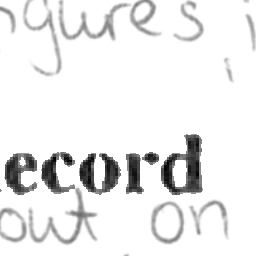 igures,
ecord
out on